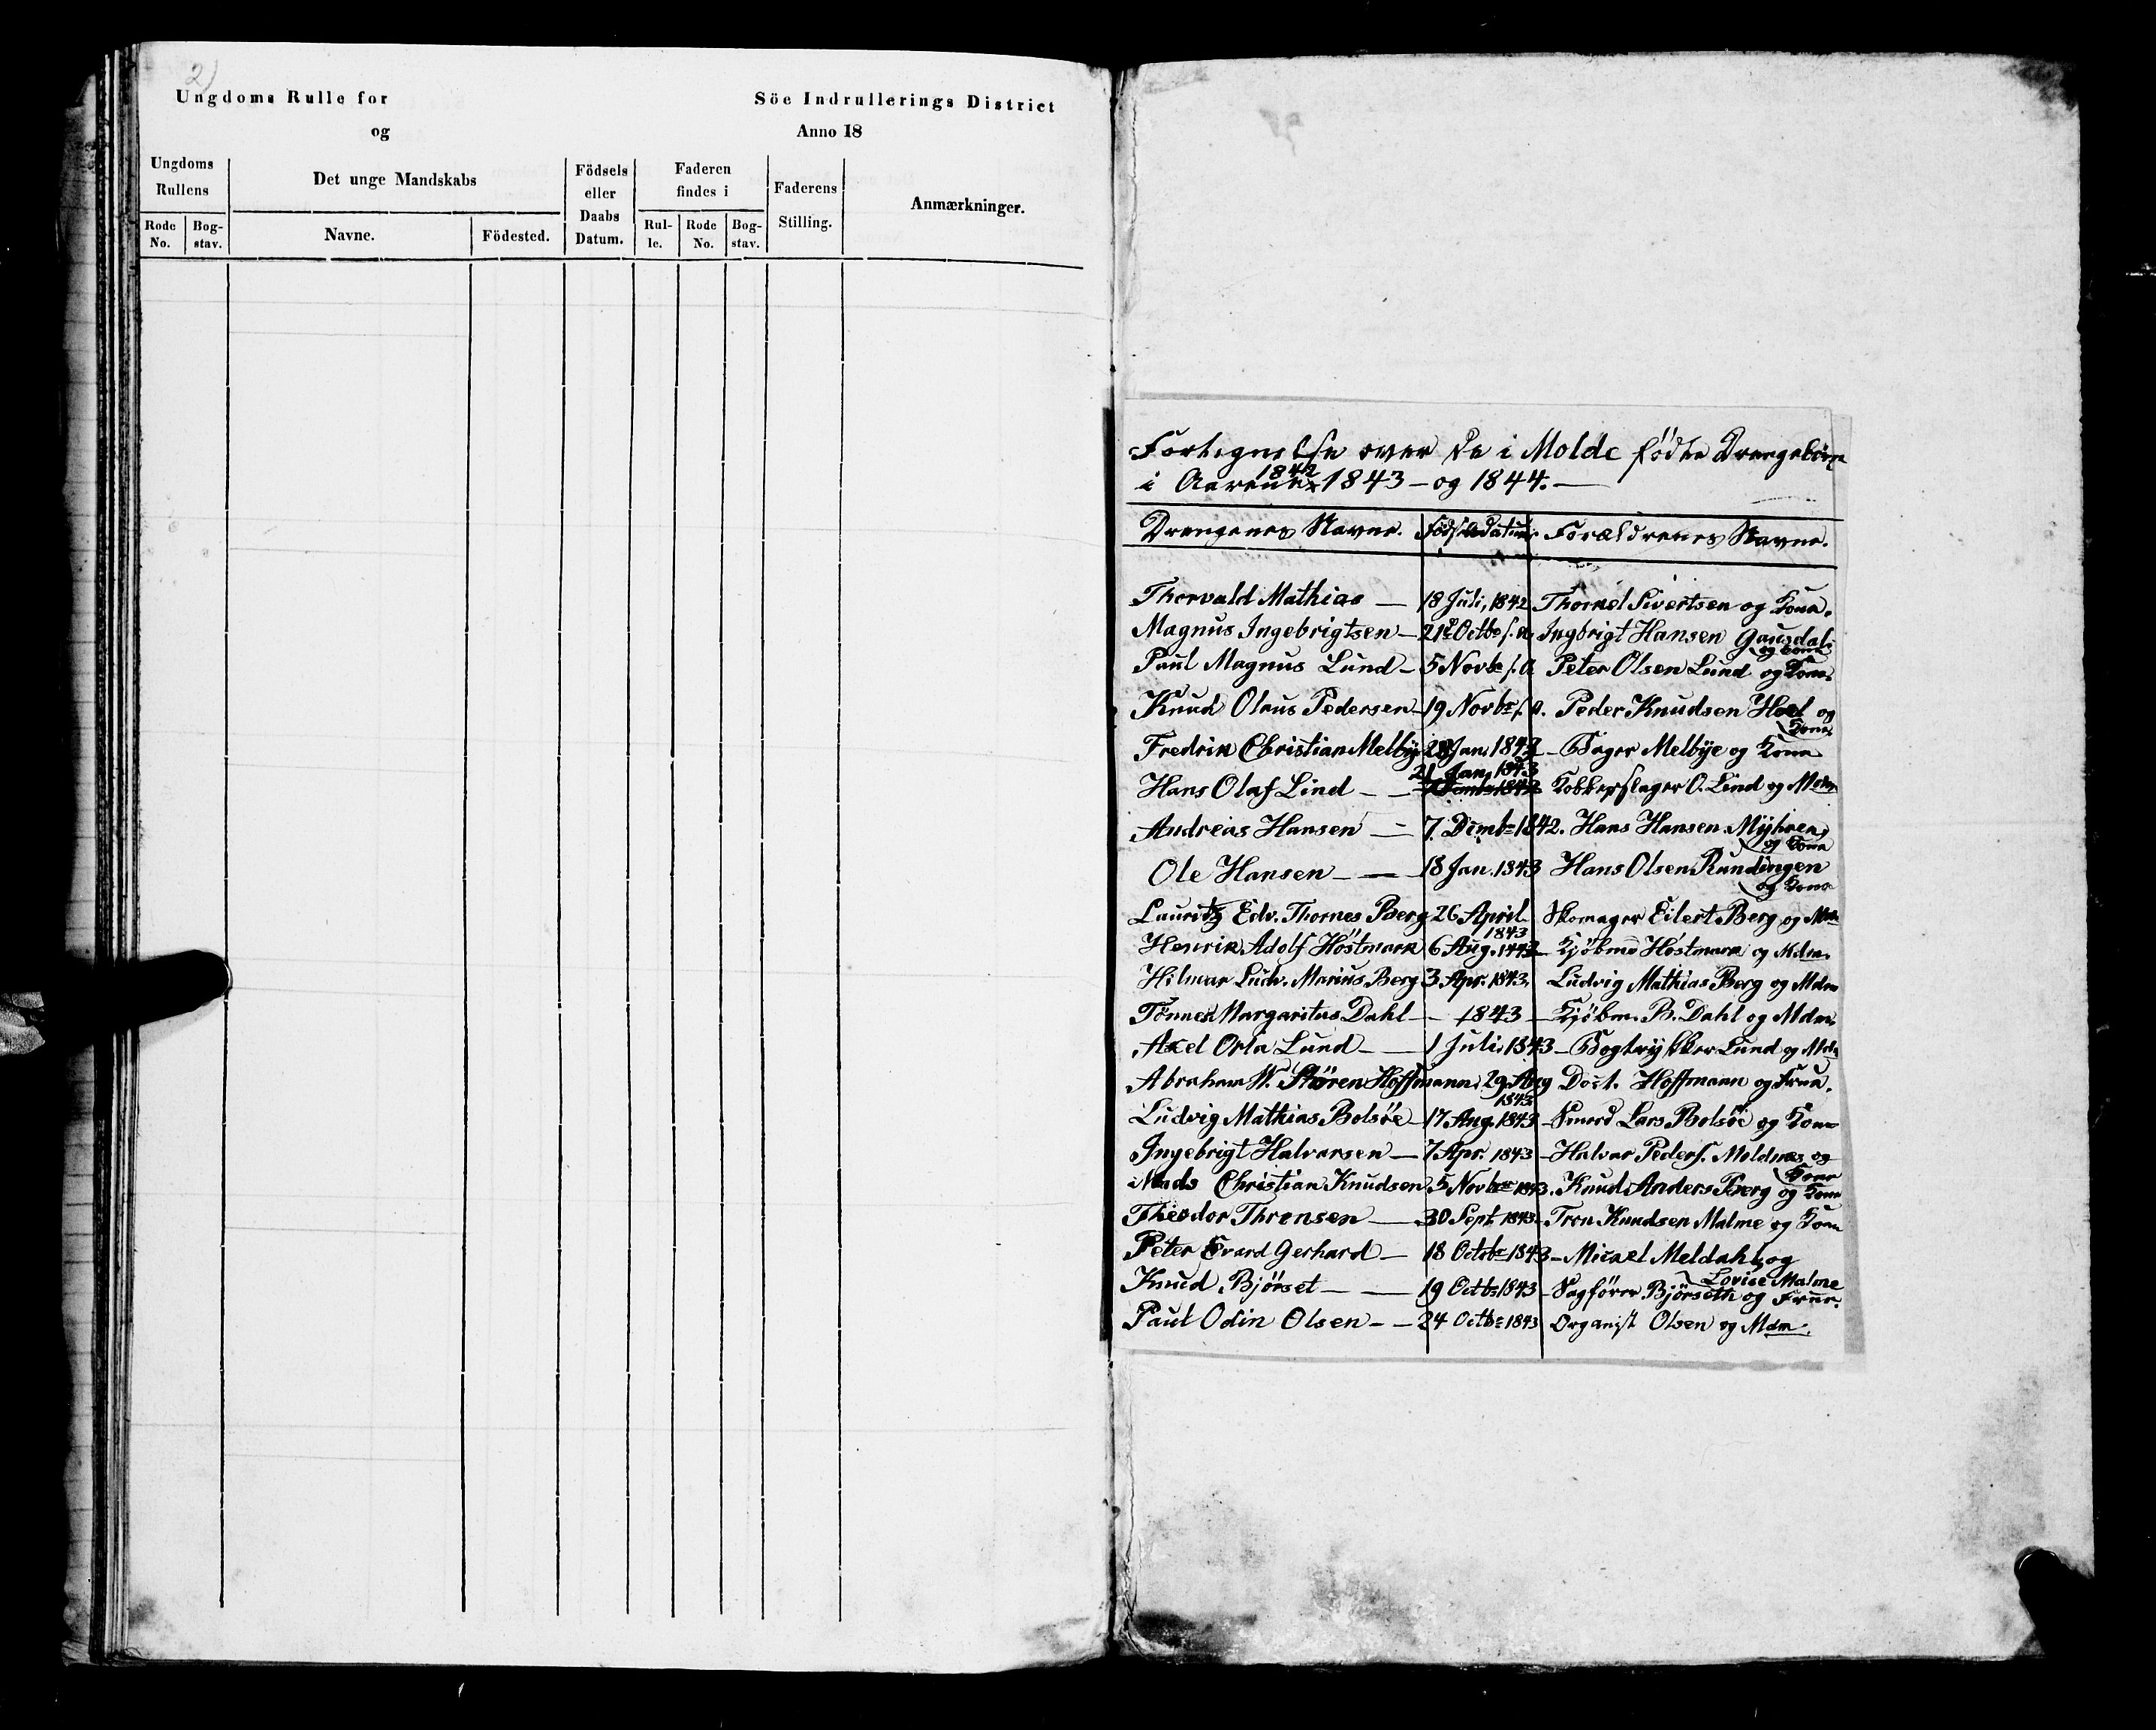 2)
Ungdoms Rulle for
og
Söe Indrullerings District
Anno 18
Ungdoms Rullens
Rode No.
Bog-stav.
Det unge Mandskabs
Navne.
Födested.
Födsels eller Daabs Datum.
Faderen findes i
Rul-le.
Rode No.
Bog-stav.
Faderens Stilling.
Anmærkninger.
Fortegnelse over de i Molde födte Drengebörn
i Aarene 1842 1843 – og 1844. –
Drengenes Navne. Födselsdatum. Forældrenes Navne.
Thorvald Mathias — 18 Juli, 1842 Sivertsen og Kona.
Magnus Ingebrigtsen – 21 Octbr s. a. Ingbrigt Hansen Gausdal
og Kona
Paul Magnus Lund – 5 Novbr s. a. Peter Olsen Lund og Kona.
Knud Olaus Pedersen – 19 Novbr s. a. Peder Knudsen Hoel og
Kona
Fredrik Christian Melbye 28 Jan. 1843 – Bager Melbye og Kona
21 Jan. 1843
Hans Olaf Lind – – Kobberslager O. Lind og Mdm
Andreas Hansen — 7. Dcmbr 1842. Hans Hansen Myhren
og Kona
Ole Hansen – — 18 Jan. 1843 Hans Olsen Rundingen
og Kona
Lauritz Edv. Thornes Berg 26 April Skomager Eilert Berg og Mdm
1843
Henrik Adolf Höstmark 6 Aug. 1843 – Kjöbmd Höstmark og Mdm.
Hilmar Ludv. Marius Berg 3 Apr. 1843 Ludvig Mathias Berg og Mdm
Tönnes Margaritus Dahl – – 1843 – Kjöbm. B. Dahl og Mdm.
Axel Orla Lund – — 1 Juli 1843 – Bogtrykker Lund og Mdm
Abraham W. Stören Hoffmann. 29 Aug Doct. Hoffmann og Frua.
1843
Ludvig Mathias Bolsöe – 17 Aug. 1843 – Smed Lars Bolsöe og Kona
Ingebrigt Halvorsen — 7 Apr. 1843 – Halvor Peders. Moldnæs og
Kona
Mads Christian Knudsen 5 Novbr 1843. Knud Anders Berg og Kona
Theodor Thronsen — 30 Sept. 1843. – Tron Knudsen Malme og Kona
Peter Evard Gerhard — 18 Octbr 1843 – Micael Meldahl og
Lovise Malme
Knud Bjørset – — 19 Octbr 1843 – Sagförer Bjørseth og Frue.
Paul Odin Olsen – – 24 Octbr 1843 Organist Olsen og Mdm.